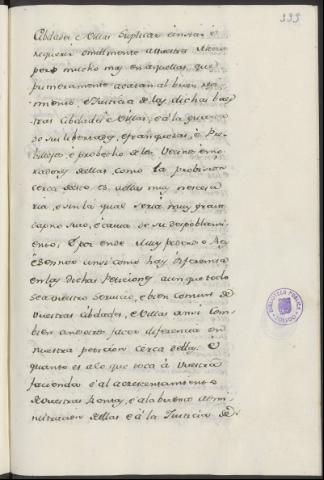 333
Cibdades e Villas suplicar e instar e
requerir omilmente a vuestra Alteza
pero mucho mas en aquellas que
primeramente acatan al buen regi-
miento, e Justicia de las dichas vues-
tras Cibdades e Villas, e á la guarda
de sus libertades, e franquezas, e Pre-
billejos e probecho de los Vecinos e mo-
radores dellas, como la probision
cerca deso es a ellas muy necesa-
ria, e sin la qual seria muy gran
dapno suio, e causa de su despoblami-
ento, E por ende Muy poderoso Rey
e Sennor ansi como hay diferencia
en las dichas Peticiones, aunque todo
sea vuestro servicio, e bien comun de
vuestras Cibdades, e Villas ansi tam-
bien andemos facer diferencia en
nuestra peticion cerca dellas. E
quanto es a lo que toca á vuestra
facienda e al acrescentamiento e
de vuestras Rentas, e a la buena admi-
nistracion dellas e á la Justicia de
BIBLIOTECA PUBLICA
TOLEDO